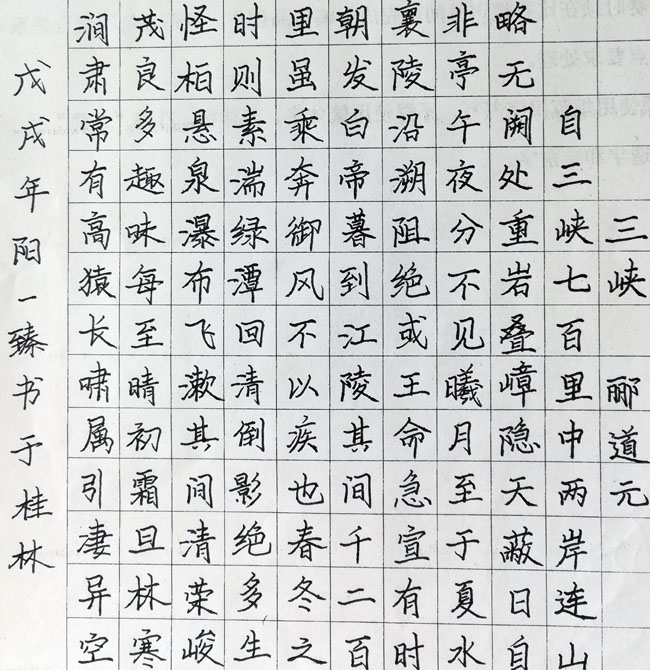 三峡 郦道元
自三峡七百里中两岸连山
略无阙处重岩叠嶂隐天蔽日自
非亭午夜分不见曦月至于夏水
襄陵沿溯阻绝或王命急宣有时
朝发白帝暮到江陵其间千二百
里虽乘奔御风不以疾也春冬之
时则素湍绿潭回清倒影绝多生
怪柏悬泉瀑布飞漱其间清荣峻
茂良多趣味每至晴初霜旦林寒
涧肃常有高猿长啸属引凄异空
戊戌年阳一臻书于桂林